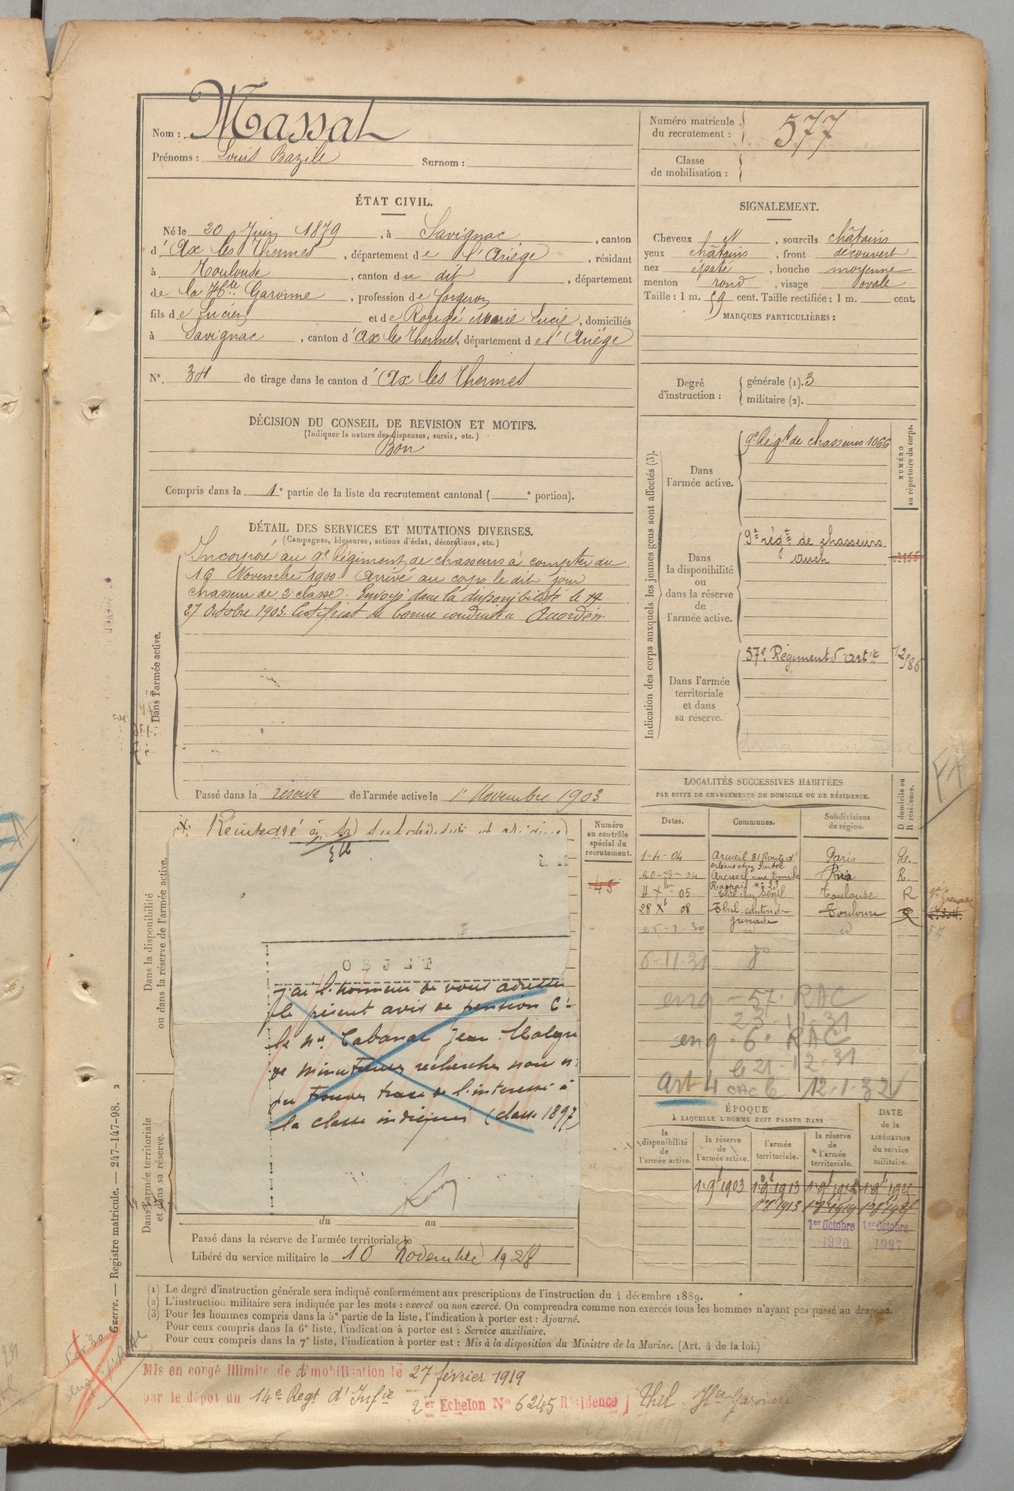 Nom : Massat
Prénoms : Louis Bazile Surnom :
Numéro matricule du recrutement : 577
Classe de mobilisation :
ÉTAT CIVIL.
Né le 20 Juin 1879, à Savignac, canton
d'Ax les Thermes, département de l'Ariège, résidant
à Toulouse, canton du dit, département
de la Hte Garonne, profession de forgeron
fils de Lucien et de Rougé Marie Lucie, domiciliés
à Savignac, canton d'Ax les Thermes, département de l'Ariège
N°. de tirage dans le canton d'Ax les Thermes
SIGNALEMENT.
Cheveux , sourcils châtains
yeux châtains, front découvert
nez épaté, bouche moyenne
menton rond, visage ovale
Taille : 1 m. 59 cent. Taille rectifiée : 1 m. cent.
MARQUES PARTICULIÈRES :
Degré d'instruction : générale (1). 3
militaire (2).
DÉCISION DU CONSEIL DE REVISION ET MOTIFS.
(Indiquer la nature des dispenses, sursis, etc.)
Bon
Compris dans la 1e partie de la liste du recrutement cantonal ( e portion).
DÉTAIL DES SERVICES ET MUTATIONS DIVERSES.
(Campagnes, blessures, actions d'éclat, décorations, etc.)
Dans l'armée active.
Incorporé au 9e Régiment de chasseurs à compter du
16 Novembre 1900. Arrivé au corps le dit jour
chasseur de 2e classe. Envoyé dans la disponibilité le
27 Octobre 1903. Certificat de bonne conduite Accordé.
Passé dans la réserve de l'armée active le 1er Novembre 1903
Indication des corps auxquels les jeunes gens sont affectés (3).
NUMÉRO au répertoire du corps.
Dans l'armée active.
9e Régt de chasseurs 1066
Dans la disponibilité ou dans la réserve de l'armée active.
9e régt de chasseurs
Auch
Dans l'armée territoriale et dans sa réserve.
57e Régiment d'artie
LOCALITÉS SUCCESSIVES HABITÉES
PAR SUITE DE CHANGEMENTS DE DOMICILE OU DE RÉSIDENCE.
Dates. Communes. Subdivisions de région. D domicile ou R résidence.
1-4-04 Arcueil 81 Route d'Orléans Paris R.
Arcueil Paris R.
05 Thil Toulouse R
28 Xb 08 Thil canton de Grenade Toulouse R
25-1-30
6-11-31
eng - 57e RAC
23-11-31
eng - 6e RAC
le 21-12-31
Art 4 CAC 6 12-1-32
Dans la disponibilité ou dans la réserve de l'armée active.
Réintégré
Numéro au contrôle spécial du recrutement.
45
OBJET
J'ai l'honneur de vous adresser
le présent avis de pension Ct
le né Cabanac Jean. Malgré
de minutieuses recherches nous n'
pu trouver trace de l'intéressé à
la classe indiquée (classe 1897)
Dans l'armée territoriale et dans sa réserve.
du au
Passé dans la réserve de l'armée territoriale le
Libéré du service militaire le 10 Novembre 1928
ÉPOQUE
À LAQUELLE L'HOMME DOIT PASSER DANS
la disponibilité de l'armée active. la réserve de l'armée active. l'armée territoriale. la réserve de l'armée territoriale. DATE de la LIBÉRATION du service militaire.
1er Octobre 1920
1er Octobre 1927
Guerre. — Registre matricule. — 247-147-98. 2
(1) Le degré d'instruction générale sera indiqué conformément aux prescriptions de l'instruction du 4 décembre 1889.
(2) L'instruction militaire sera indiquée par les mots : exercé ou non exercé. On comprendra comme non exercés tous les hommes n'ayant pas passé au drapeau.
(3) Pour les hommes compris dans la 5e partie de la liste, l'indication à porter est : Ajourné.
Pour ceux compris dans la 6e liste, l'indication à porter est : Service auxiliaire.
Pour ceux compris dans la 7e liste, l'indication à porter est : Mis à la disposition du Ministre de la Marine. (Art. 4 de la loi.)
Mis en congé illimité de démobilisation le 27 février 1919
par le dépôt du 14e Regt d'Infie 2e Echelon N° 6245 Résidence Thil Hte Garonne